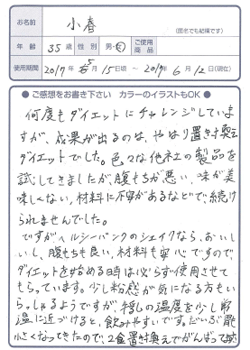 お名前
小春
(匿名でも結構です)
年齢 35歳 性別 男・女 ご使用商品
使用期間 2017年5月15日頃〜2017年6月12日(現在)
●ご感想をお書き下さい カラーのイラストもOK●
何度もダイエットにチャレンジしていま
すが、成果が出るのは、やはり置き換え
ダイエットでした。色々な他社の製品を
試してきましたが、腹もちが悪い、味が美
味しくない、材料に不安があるなどで、続け
られませんでした。
ですがヘルシーバンクのシェイクなら、おいし
いし、腹もちも良い、材料も安心ですので
ダイエットを始める時は必らず使用させて
もらっています。少し粉感が気になる方もい
らっしゃるようですが、溶しの温度を少し常
温に近づけると、飲みやすいです。だいぶ
小さくなってきたので、2食置き換えでがんばって